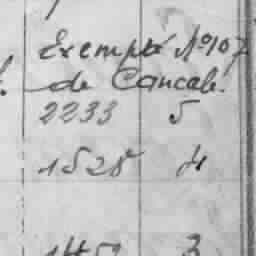 Exempté No 107
de Cancale.
2233 5
1528 4
1452 3